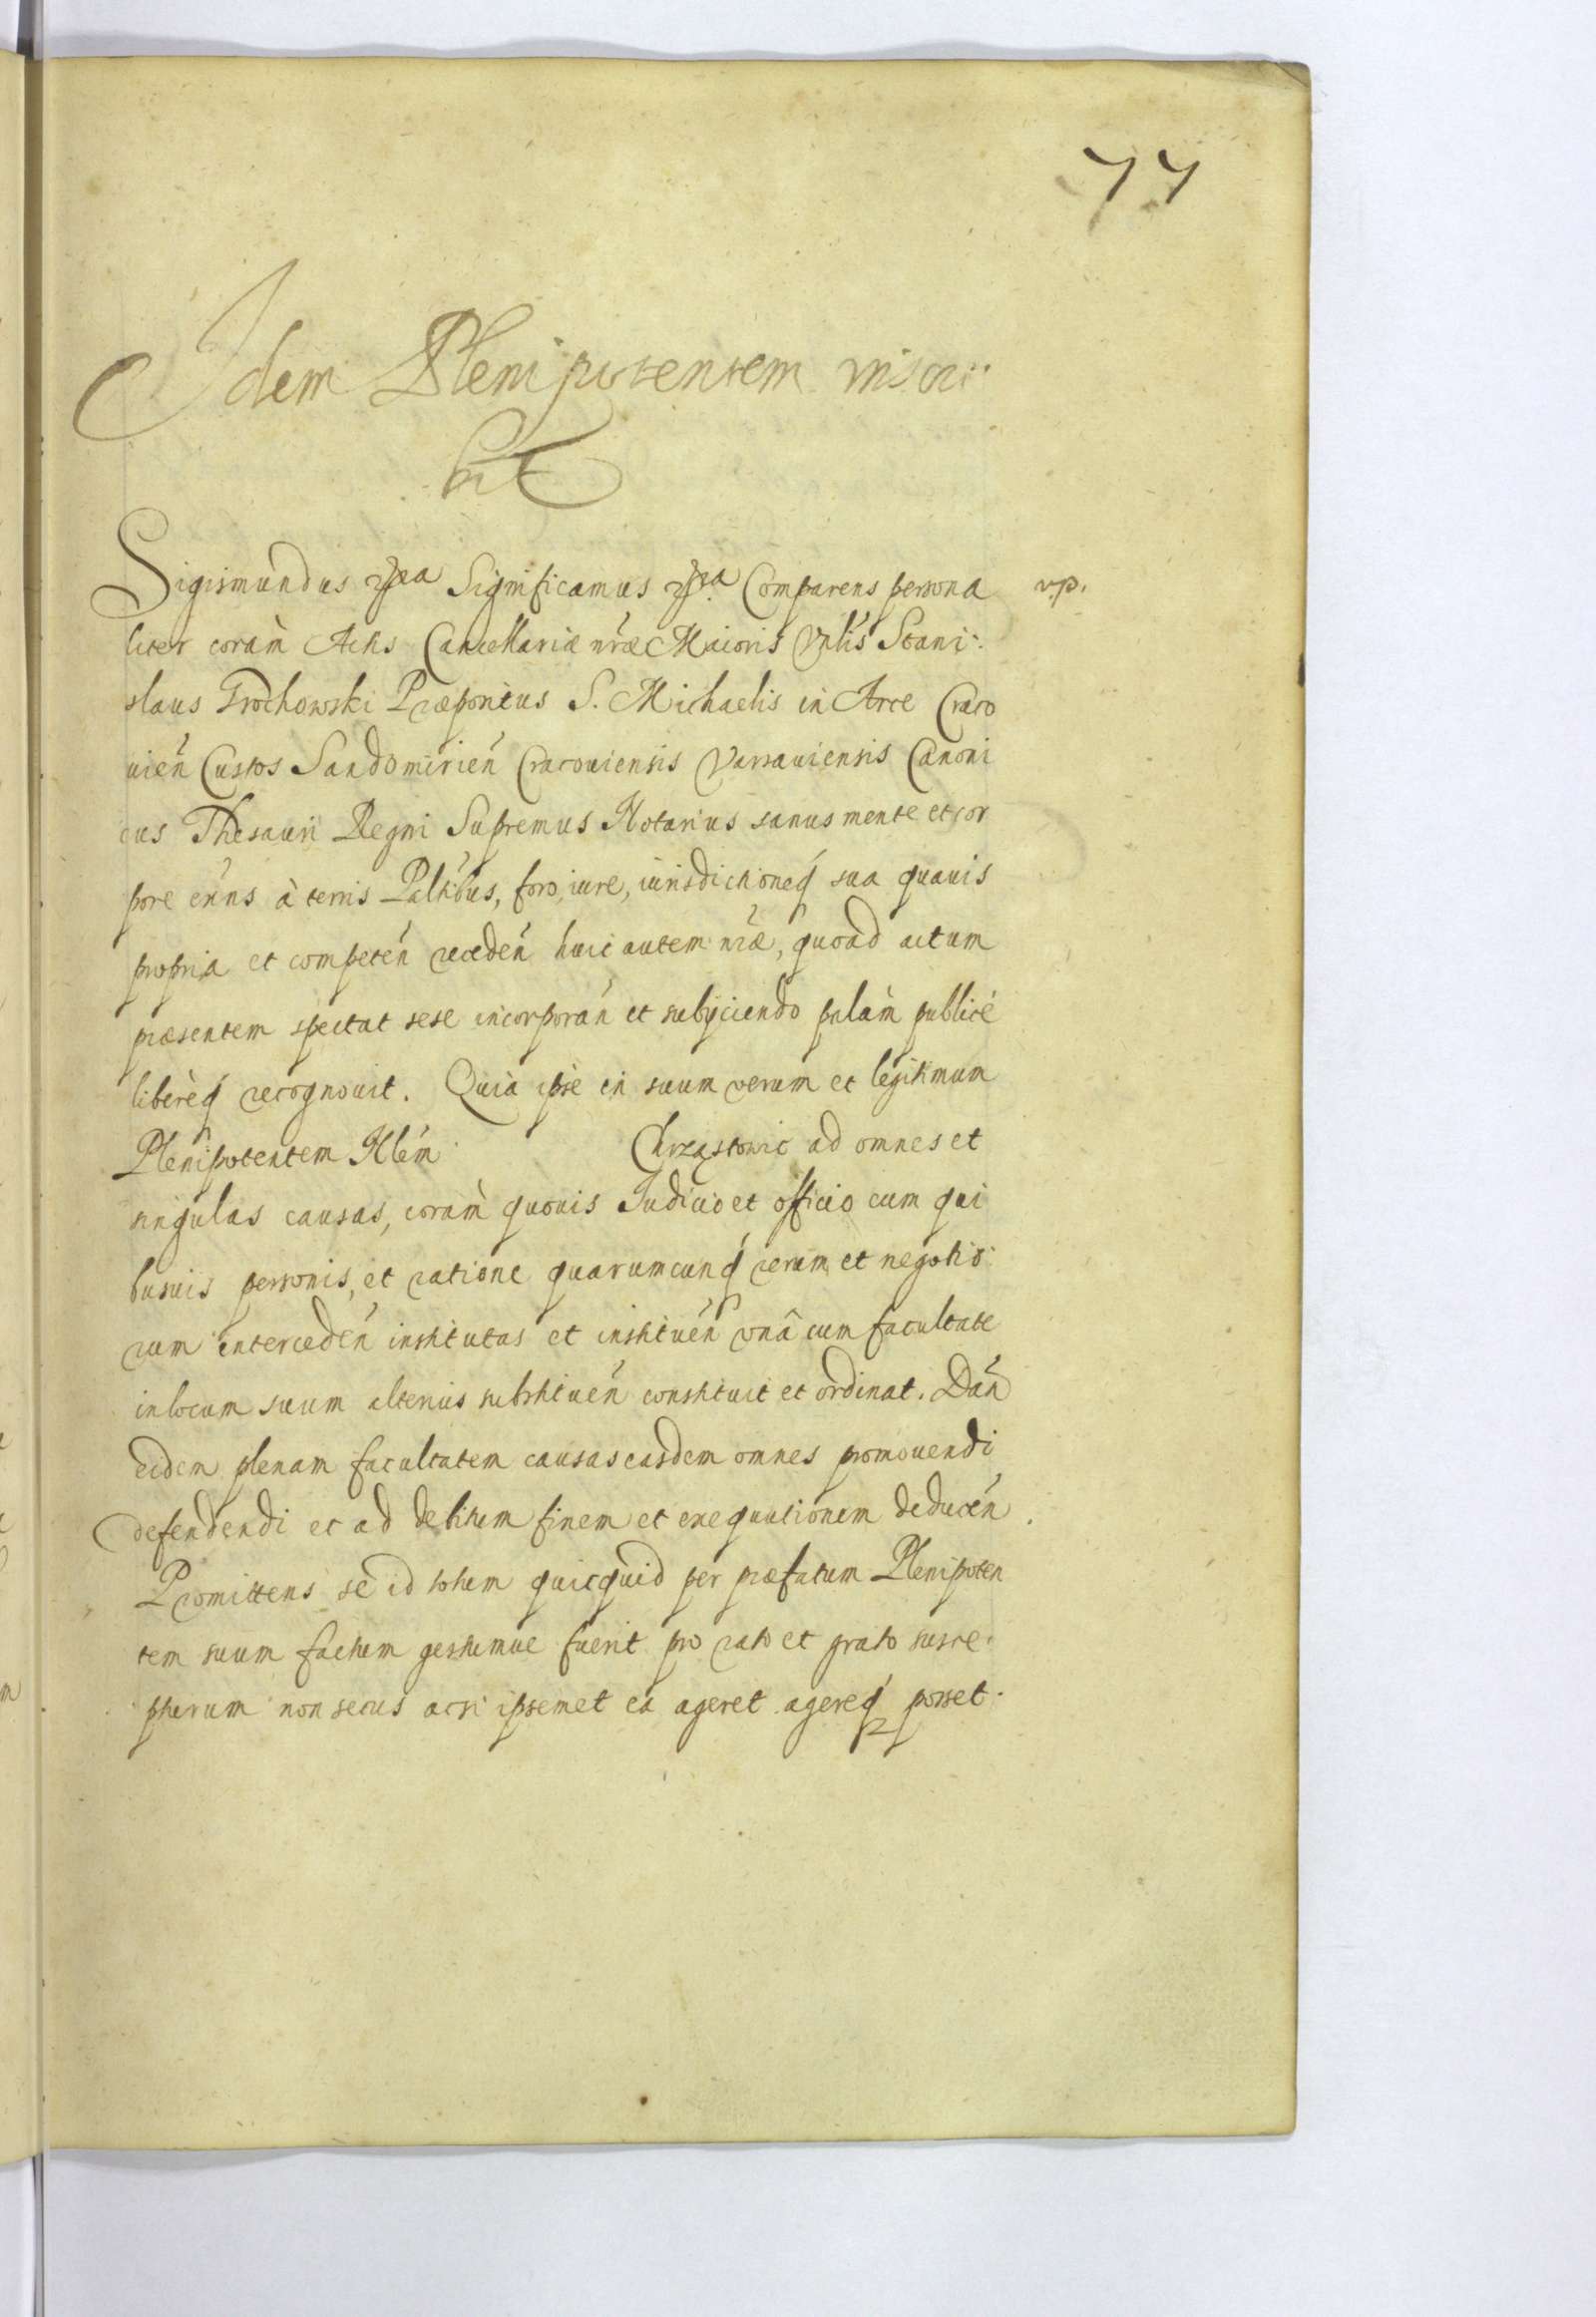 77
Idem Plenipotentem inscri:
bit
Sigismundus Significamus Comparens persona
v.p.
liter coràm Actis Cancellariæ nr̃æ Maioris Vnlis Stani:
slaus Grochowski Præpositus S. Michaelis in Arce Craco
uień Custos Sandomirień Cracouiensis Varsauiensis Canoni
cus Thesauri Regni Supremus Notarius sanus mente et cor
pore eńns à terris Paltibus, foro, iure, iurisdictioneq sua quauis
propria et competeń recedeń huic autem nr̃æ, quoad actum
præsentem spectat sese incorporań et subijciendo palàm publicè
liberèq recognouit. Quià ipse in suum verum et legitimum
Plenipotentem Nlem Chrząstowic ad omnes et
singulas causas, coràm quouis Iudicio et officio cum qui
busuis personis, et ratione quarumcunq rerum et negotio:
rum intercedeń institutas et institueń vnâ cum facultate
in locum suum alterius substitueń constituit et ordinat. Dań
eidem plenam facultatem causas easdem omnes promouendi
defendendi et ad debitum finem et exequutionem deduceń.
Promittens se id totum quicquid per præfatum Plenipoten
tem suum factum gestumue fuerit pro rato et grato susce:
pturum non secus acsi ipsemet ea ageret agereq posset.